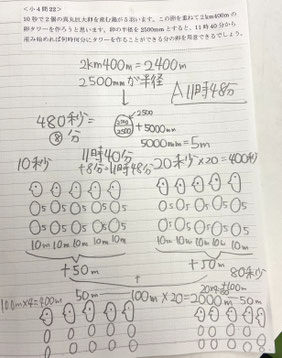 <小4問22>
10秒で2個の真丸巨大卵を産む鶏が5羽います。この卵を重ねて2km400mの
卵タワーを作ろうと思います。卵の半径を2500mmとすると、11時40分から
産み始めれば何時何分にタワーを作ることができる分の卵を用意できるでしょう。
2km400m=2400m
2500mmが半径
A 11時48分
480秒=
⑧分
2500
2500
+5000mm
5000mm=5m
11時40分
+8分=11時48分
10秒
20秒×20=400秒
5 5 5 5 5
5 5 5 5 5
10m 10m 10m 10m 10m
+50m
5 5 5 5 5
5 5 5 5 5
10m 10m 10m 10m 10m
+50m
80秒
100m×4=400m
50m
100m×20=2000m
50m